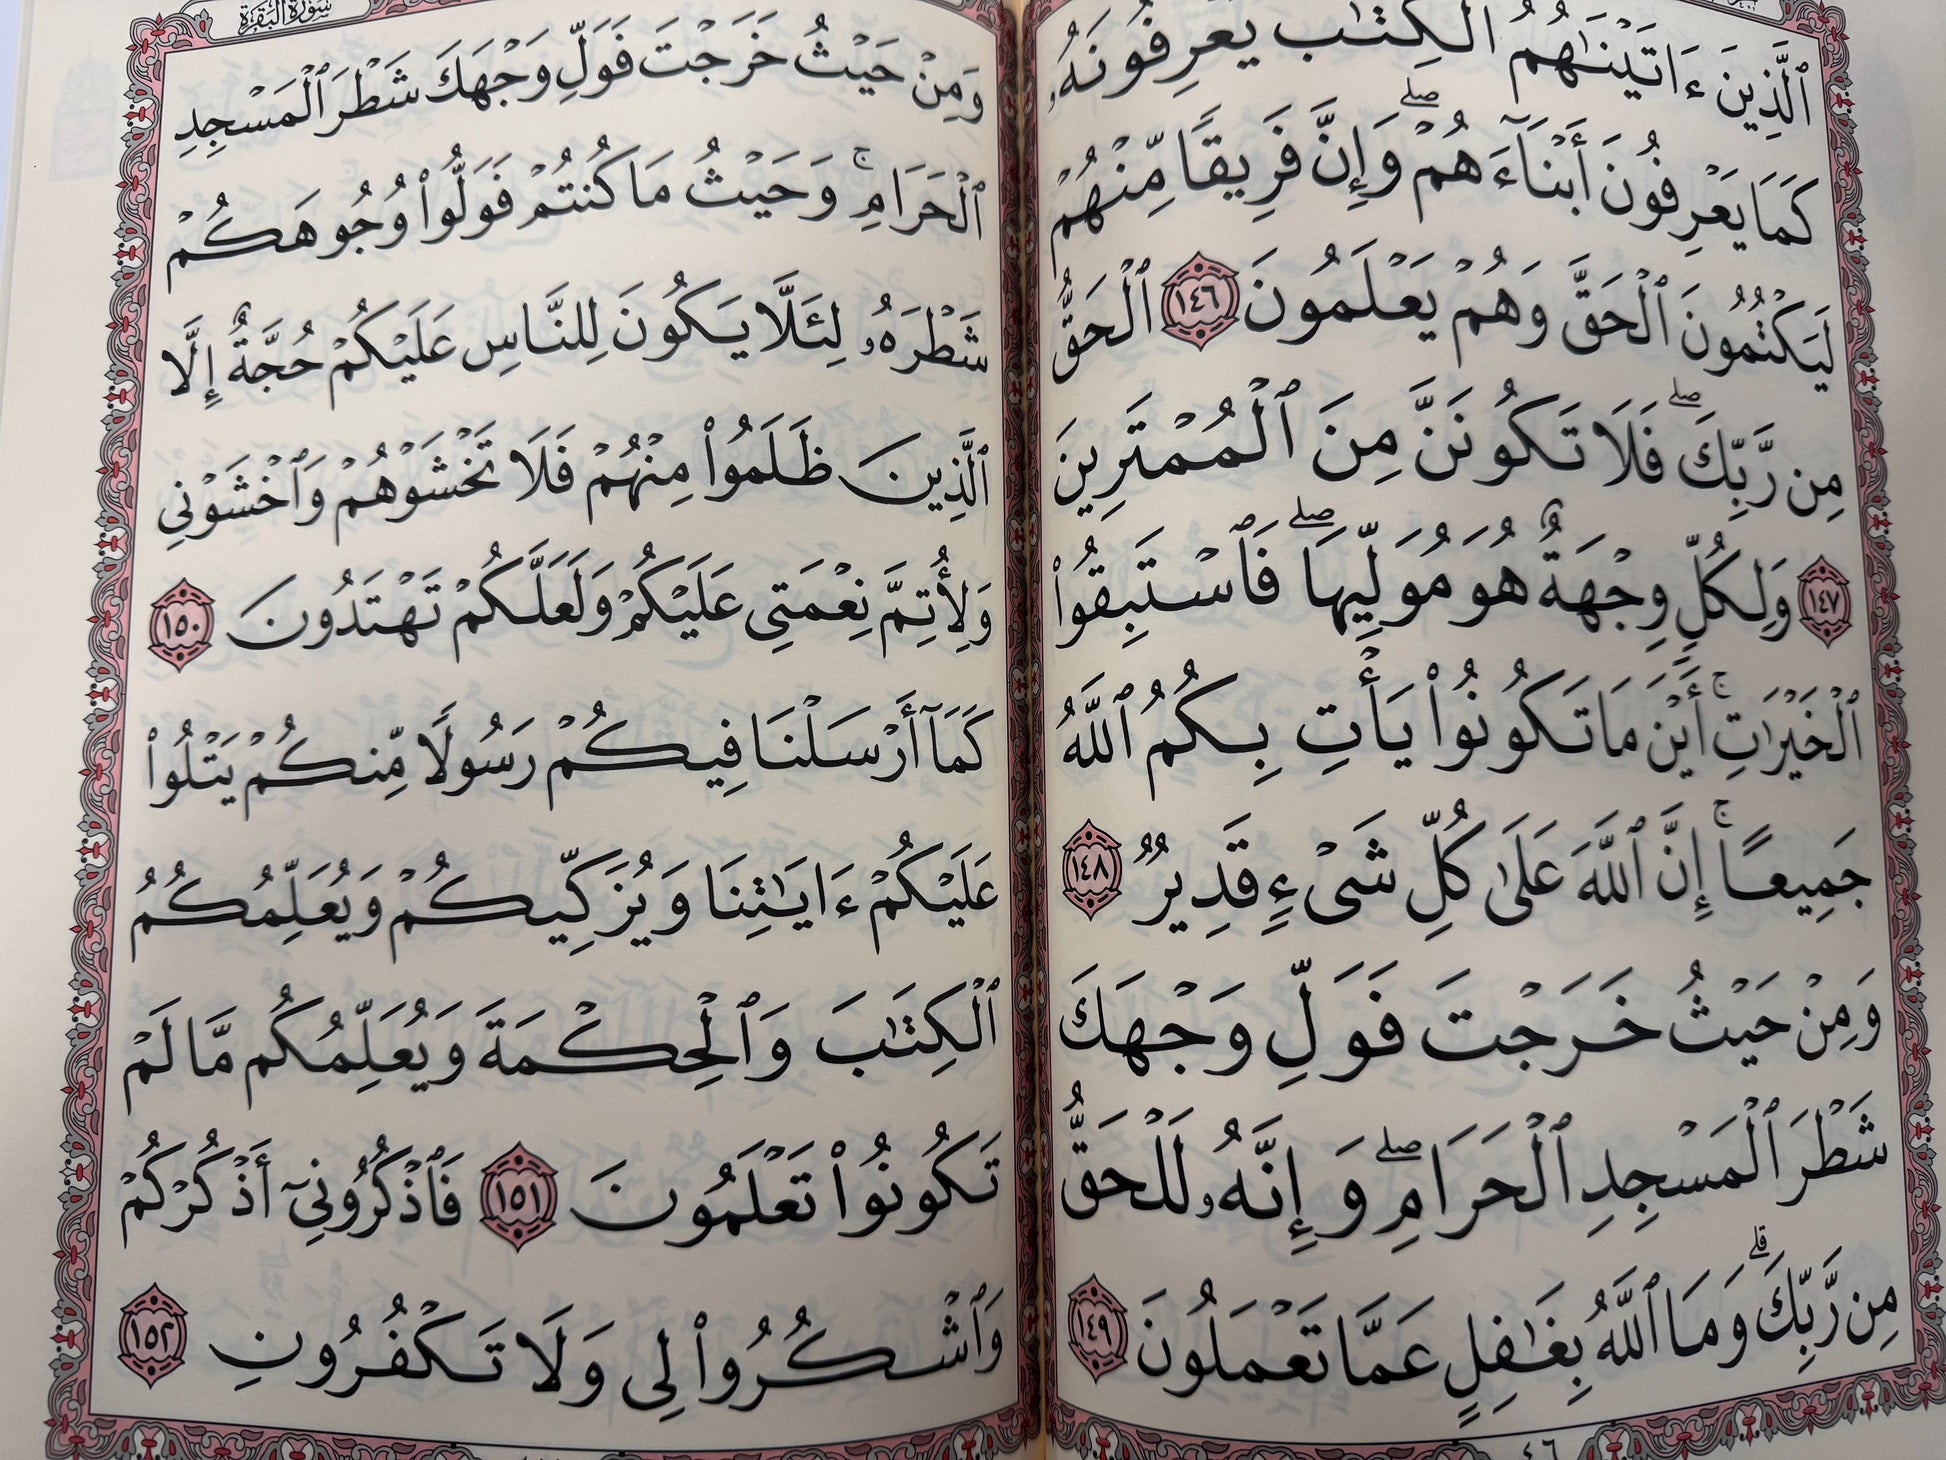 ٱلَّذِينَ ءَاتَيۡنَٰهُمُ ٱلۡكِتَٰبَ يَعۡرِفُونَهُۥ
كَمَا يَعۡرِفُونَ أَبۡنَآءَهُمۡۖ وَإِنَّ فَرِيقٗا مِّنۡهُمۡ
لَيَكۡتُمُونَ ٱلۡحَقَّ وَهُمۡ يَعۡلَمُونَ ١٤٦ ٱلۡحَقُّ
مِن رَّبِّكَۖ فَلَا تَكُونَنَّ مِنَ ٱلۡمُمۡتَرِينَ
١٤٧ وَلِكُلّٖ وِجۡهَةٌ هُوَ مُوَلِّيهَاۖ فَٱسۡتَبِقُواْ
ٱلۡخَيۡرَٰتِۚ أَيۡنَ مَا تَكُونُواْ يَأۡتِ بِكُمُ ٱللَّهُ
جَمِيعًاۚ إِنَّ ٱللَّهَ عَلَىٰ كُلِّ شَيۡءٖ قَدِيرٞ ١٤٨
وَمِنۡ حَيۡثُ خَرَجۡتَ فَوَلِّ وَجۡهَكَ
شَطۡرَ ٱلۡمَسۡجِدِ ٱلۡحَرَامِۖ وَإِنَّهُۥ لَلۡحَقُّ
مِن رَّبِّكَۗ وَمَا ٱللَّهُ بِغَٰفِلٍ عَمَّا تَعۡمَلُونَ ١٤٩
سُورَةُ البَقَرَةِ
وَمِنۡ حَيۡثُ خَرَجۡتَ فَوَلِّ وَجۡهَكَ شَطۡرَ ٱلۡمَسۡجِدِ
ٱلۡحَرَامِۚ وَحَيۡثُ مَا كُنتُمۡ فَوَلُّواْ وُجُوهَكُمۡ
شَطۡرَهُۥ لِئَلَّا يَكُونَ لِلنَّاسِ عَلَيۡكُمۡ حُجَّةٌ إِلَّا
ٱلَّذِينَ ظَلَمُواْ مِنۡهُمۡ فَلَا تَخۡشَوۡهُمۡ وَٱخۡشَوۡنِي
وَلِأُتِمَّ نِعۡمَتِي عَلَيۡكُمۡ وَلَعَلَّكُمۡ تَهۡتَدُونَ ١٥٠
كَمَآ أَرۡسَلۡنَا فِيكُمۡ رَسُولٗا مِّنكُمۡ يَتۡلُواْ
عَلَيۡكُمۡ ءَايَٰتِنَا وَيُزَكِّيكُمۡ وَيُعَلِّمُكُمُ
ٱلۡكِتَٰبَ وَٱلۡحِكۡمَةَ وَيُعَلِّمُكُم مَّا لَمۡ
تَكُونُواْ تَعۡلَمُونَ ١٥١ فَٱذۡكُرُونِيٓ أَذۡكُرۡكُمۡ
وَٱشۡكُرُواْ لِي وَلَا تَكۡفُرُونِ ١٥٢